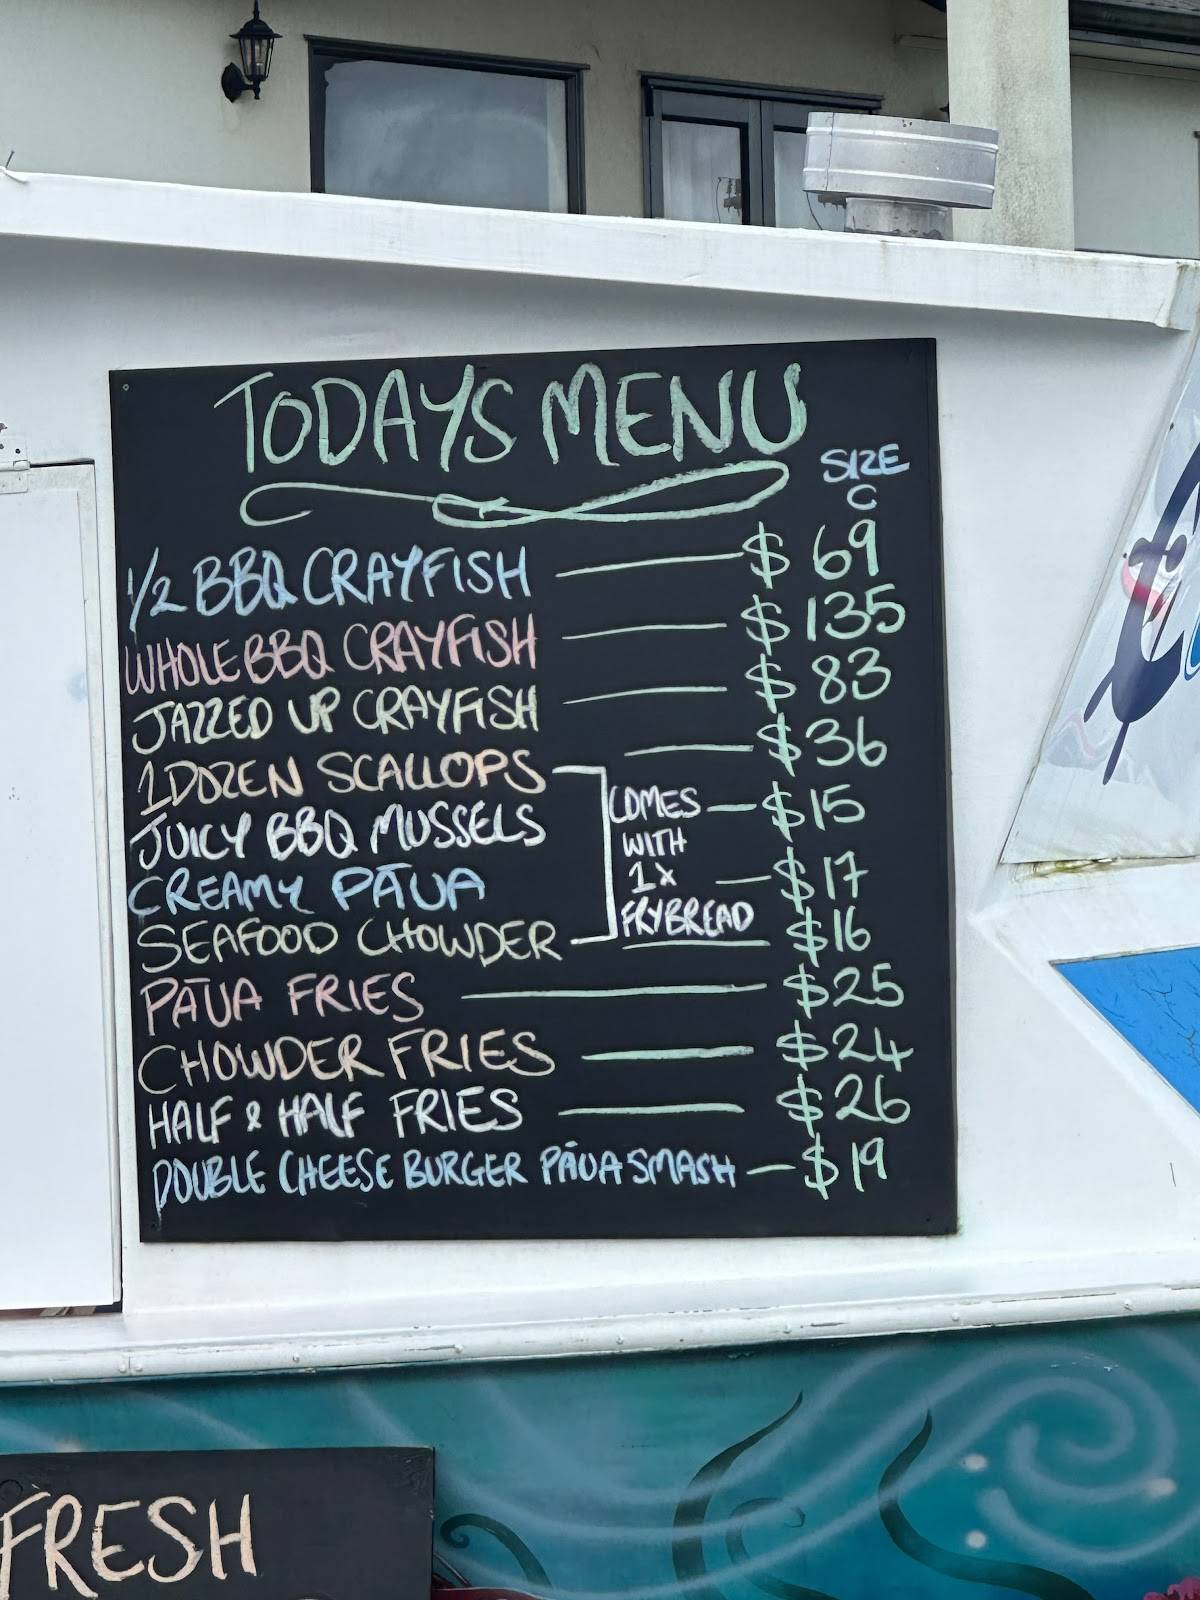 TODAYS MENU
SIZE
C
1/2 BBQ CRAYFISH $ 69
WHOLE BBQ CRAYFISH $ 135
JAZZED UP CRAYFISH $ 83
1 DOZEN SCALLOPS $36
JUICY BBQ MUSSELS $15
CREAMY PĀUA $17
SEAFOOD CHOWDER $16
COMES
WITH
1X
FRYBREAD
PĀUA FRIES $25
CHOWDER FRIES $24
HALF & HALF FRIES $26
DOUBLE CHEESE BURGER PĀUA SMASH $19
FRESH